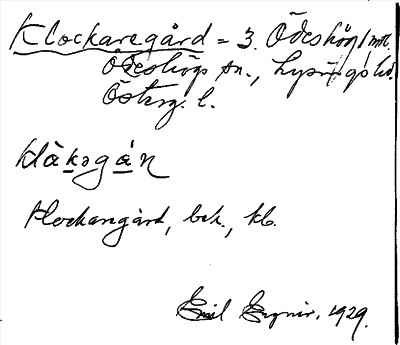 Klockaregård = 3. Ödeshög, mtl.
Ödeshögs sn., Lysings hd.
Österg. l.
klàkəgá̱n
Klockargård, bek., kb.
Emil 1929.